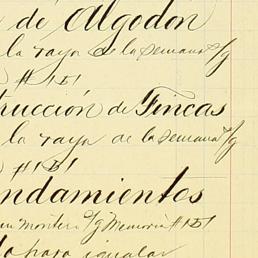 de Algodon
la raya de la Semana s/g
# 151
trucción de Fincas
la raya de la Semana s/g
# 151
ndamientos
Montero s/g Memoria # 151
para igualar